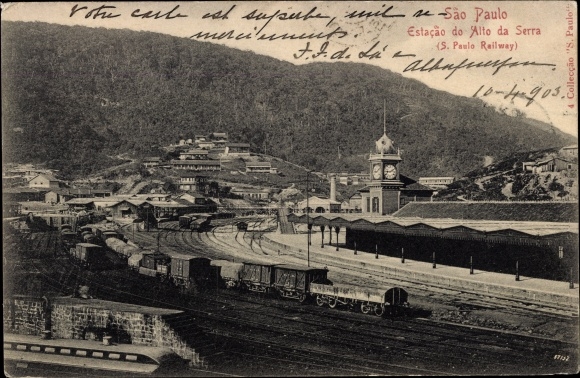 Votre carte est superbe, mil re-
merciements.
São Paulo
Estação do Alto da Serra
(S. Paulo Railway)
F. J. de Sá e
Albuquerque
10-4-903.
4 Collecção "S. Paulo"